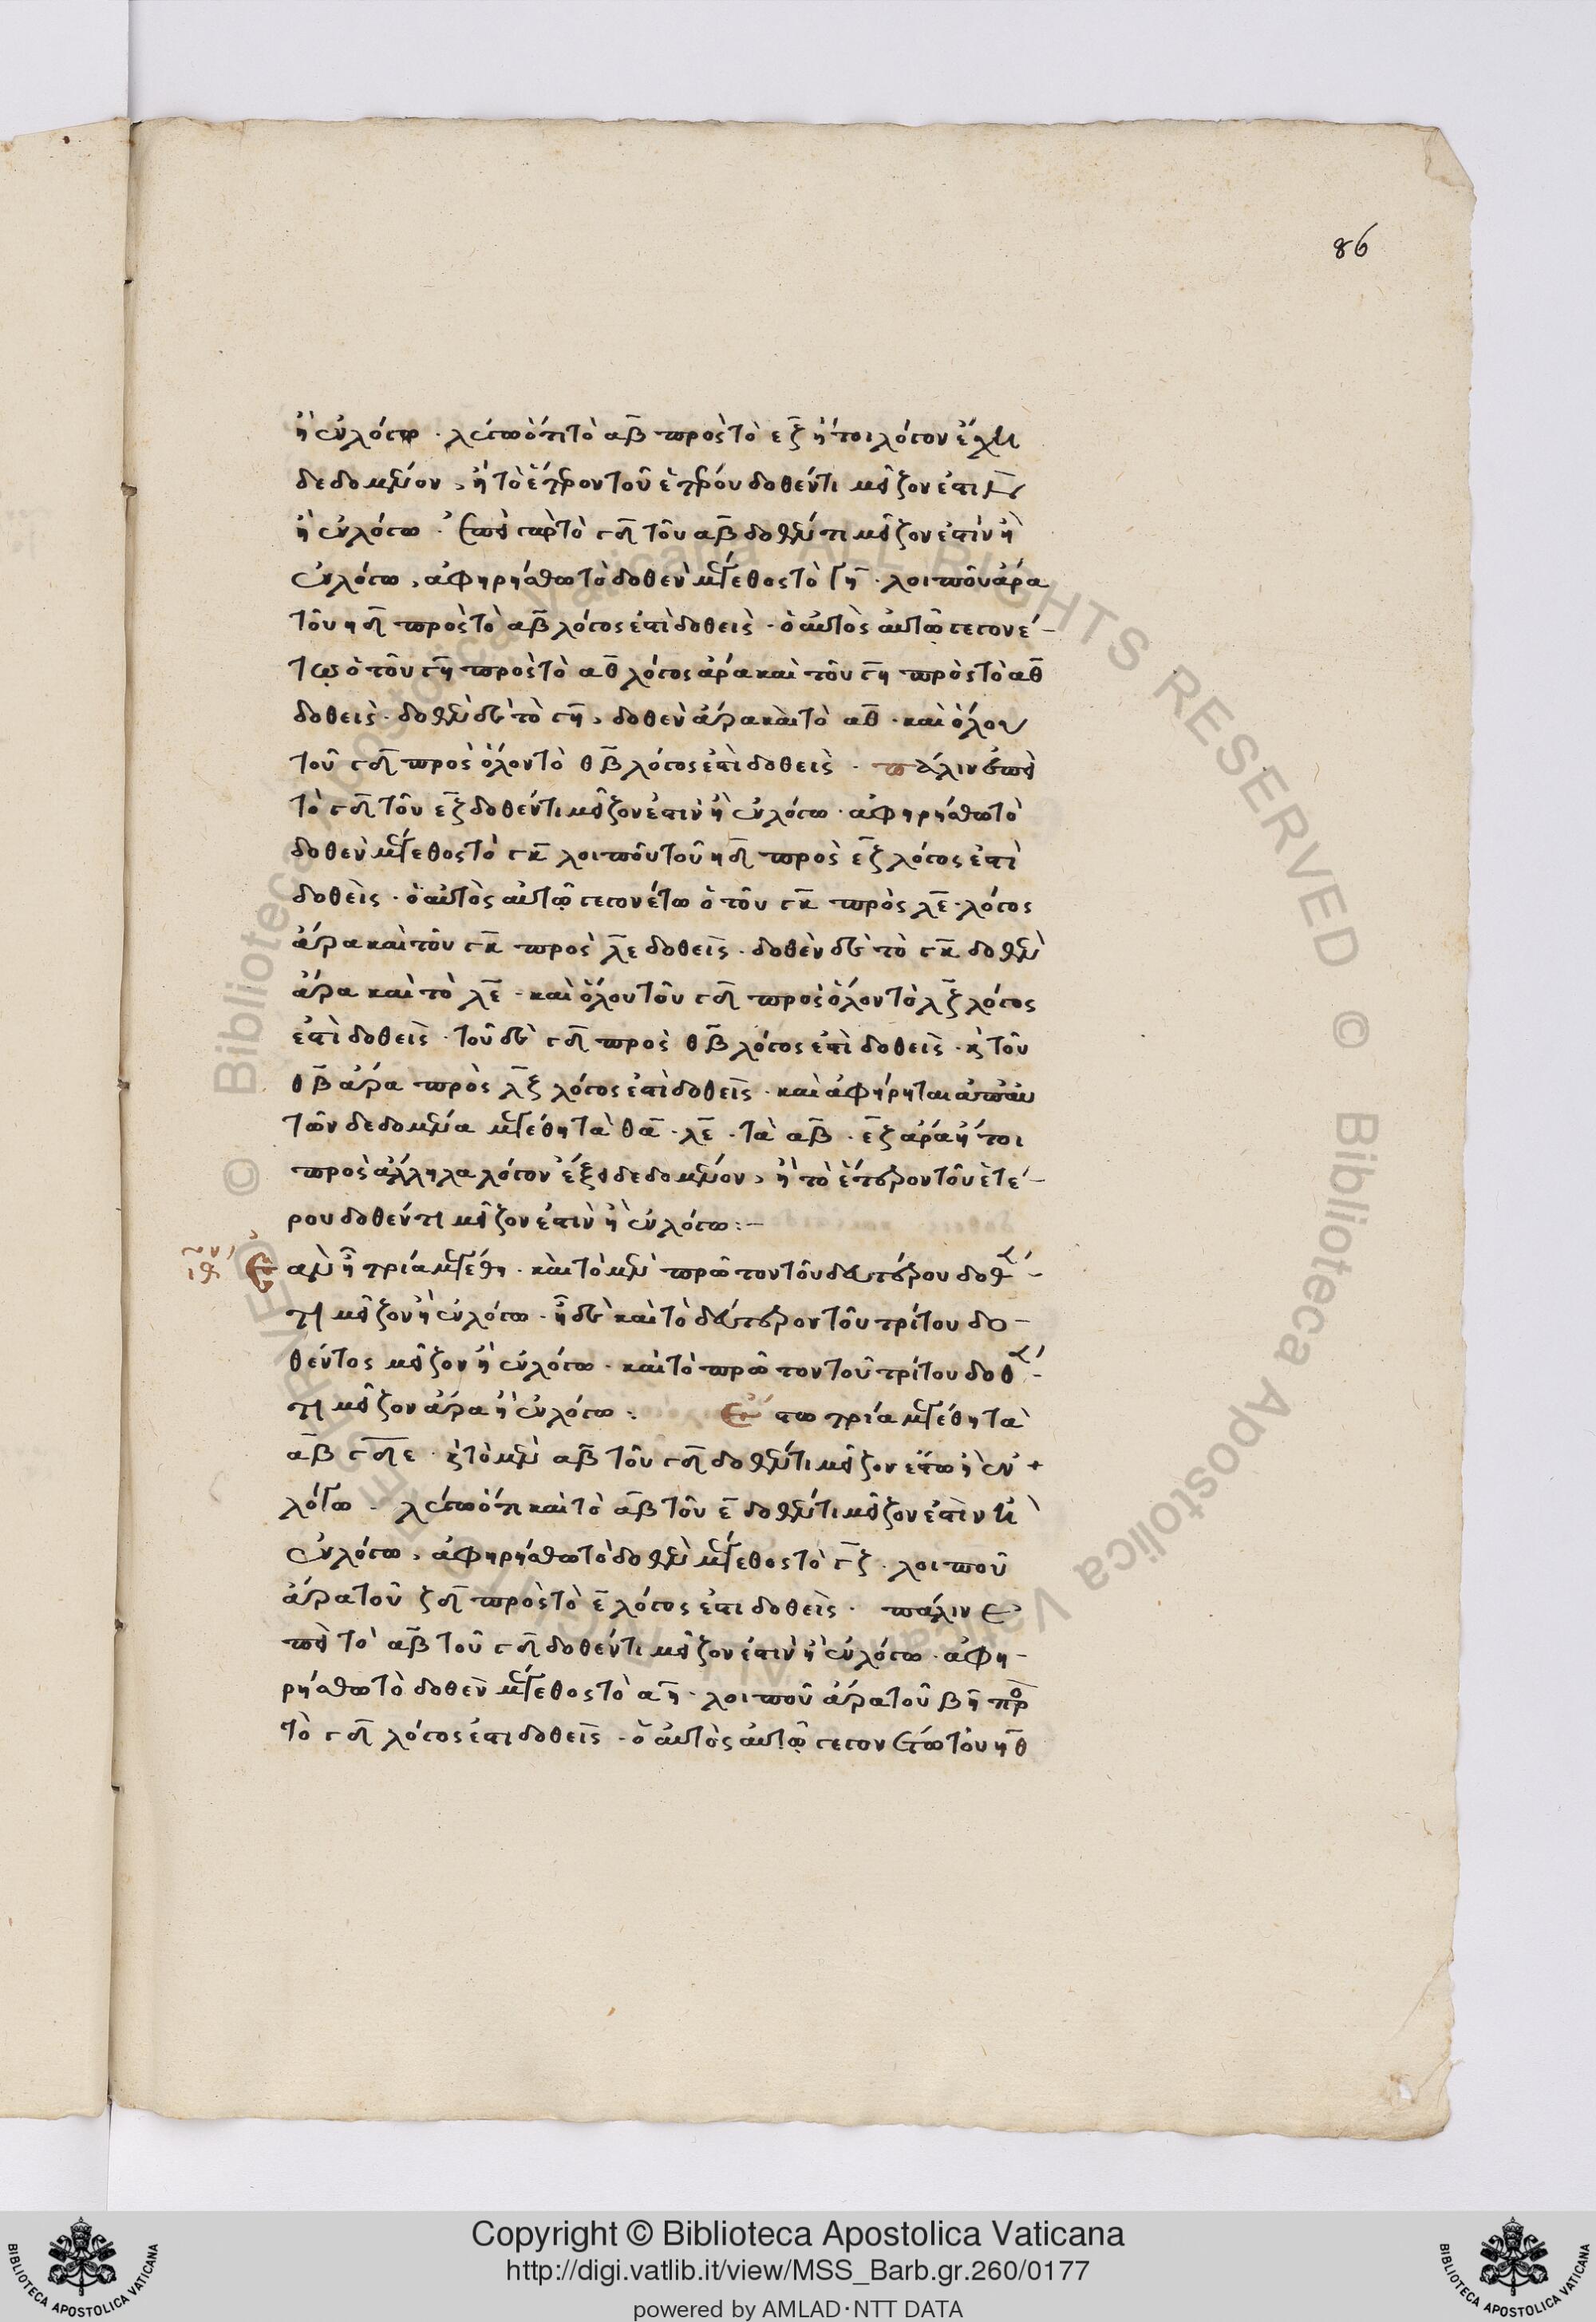 86
ἢ ἐν λόγω · λέγω ὅτι τὸ αβ πρὸς τὸ εζ ἤτοι λόγον ἔχει
δεδομένον, ἢ τὸ ἕτερον τοῦ ἑτέρου δοθέντι μεῖζον ἐστιν
ἢ ἐν λόγω · Ἐπεὶ γὰρ τὸ γδ τοῦ αβ δοθέντι μεῖζον ἐστὶν ἢ
ἐν λόγω, ἀφηρήσθω τὸ δοθὲν μέγεθος τὸ γη · λοιποῦ ἄρα
τοῦ ηδ πρὸς τὸ αβ λόγος ἐστὶ δοθεὶς · ὁ αὐτὸς αὐτῷ γεγονέ-
τω ὁ τοῦ γη πρὸς τὸ αθ λόγος ἄρα καὶ τοῦ γη πρὸς τὸ αθ
δοθεὶς · δοθὲν δὲ τὸ γη, δοθὲν ἄρα καὶ τὸ αθ · καὶ ὅλου
τοῦ γδ πρὸς ὅλον τὸ θβ λόγος ἐστὶ δοθεὶς · πάλιν ἐπεὶ
τὸ γδ τοῦ εζ δοθέντι μεῖζον ἐστὶν ἢ ἐν λόγω · ἀφηρήσθω τὸ
δοθὲν μέγεθος τὸ γκ λοιποῦ τοῦ κδ πρὸς εζ λόγος ἐστὶ
δοθεὶς · ὁ αὐτὸς αὐτῷ γεγονέτω ὁ τοῦ γκ πρὸς λε · λόγος
ἄρα καὶ τοῦ γκ πρὸς λε δοθεὶς · δοθὲν δὲ τὸ γκ δοθὲν
ἄρα καὶ τὸ λε · καὶ ὅλου τοῦ γδ πρὸς ὅλον τὸ λζ λόγος
ἐστὶ δοθεὶς · τοῦ δὲ γδ πρὸς θβ λόγος ἐστὶ δοθεὶς · κ̀ τοῦ
θβ ἄρα πρὸς λζ λόγος ἐστὶ δοθεὶς · καὶ ἀφήρηται ἀπ' αὐ
τῶν δεδομένα μεγέθη τὰ θα · λε · τὰ αβ · εζ ἄρα ἤτοι
πρὸς ἄλληλα λόγον ἕξει δεδομένον, ἢ τὸ ἕτερον τοῦ ἑτέ-
ρου δοθέντι μεῖζον ἐστὶν ἢ ἐν λόγω :-
ιθ Ἐὰν ᾖ τρία μεγέθη · καὶ τὸ μὲν πρῶτον τοῦ δευτέρου δοθέν-
τι μεῖζον ἢ ἐν λόγω · ᾖ δὲ καὶ τὸ δεύτερον τοῦ τρίτου δο-
θέντος μεῖζον ἢ ἐν λόγω · καὶ τὸ πρῶτον τοῦ τρίτου δοθέν-
τι μεῖζον ἄρα ἢ ἐν λόγω : Ἔστω τρία μεγέθη τὰ
αβ γδ ε · κ̀ τὸ μὲν αβ τοῦ γδ δοθέντι μεῖζον ἔστω ἢ ἐν
λόγω · λέγω ὅτι καὶ τὸ αβ τοῦ ε δοθέντι μεῖζον ἐστὶν ἢ
ἐν λόγω, ἀφηρήσθω τὸ δοθὲν μέγεθος τὸ γζ · λοιποῦ
ἄρα τοῦ ζδ πρὸς τὸ ε λόγος ἐστι δοθεὶς · πάλιν ἐ
πεὶ τὸ αβ τοῦ γδ δοθέντι μεῖζον ἐστὶν ἢ ἐν λόγω · ἀφη-
ρήσθω τὸ δοθὲν μέγεθος τὸ αη · λοιποῦ ἄρα τοῦ βη πρὸς
τὸ γδ λόγος ἐστι δοθεὶς · ὁ αὐτὸς αὐτῷ γεγονέτω τοῦ ηθ
Copyright © Biblioteca Apostolica Vaticana
http://digi.vatlib.it/view/MSS_Barb.gr.260/0177
powered by AMLAD·NTT DATA